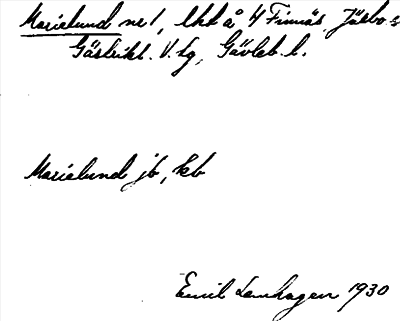 Marielund nr 1, lht å 4 Finnäs Järbo s
Gästrikl. V. tg, Gävleb. l.
Marielund jb, kb
Emil Lenhagen 1930